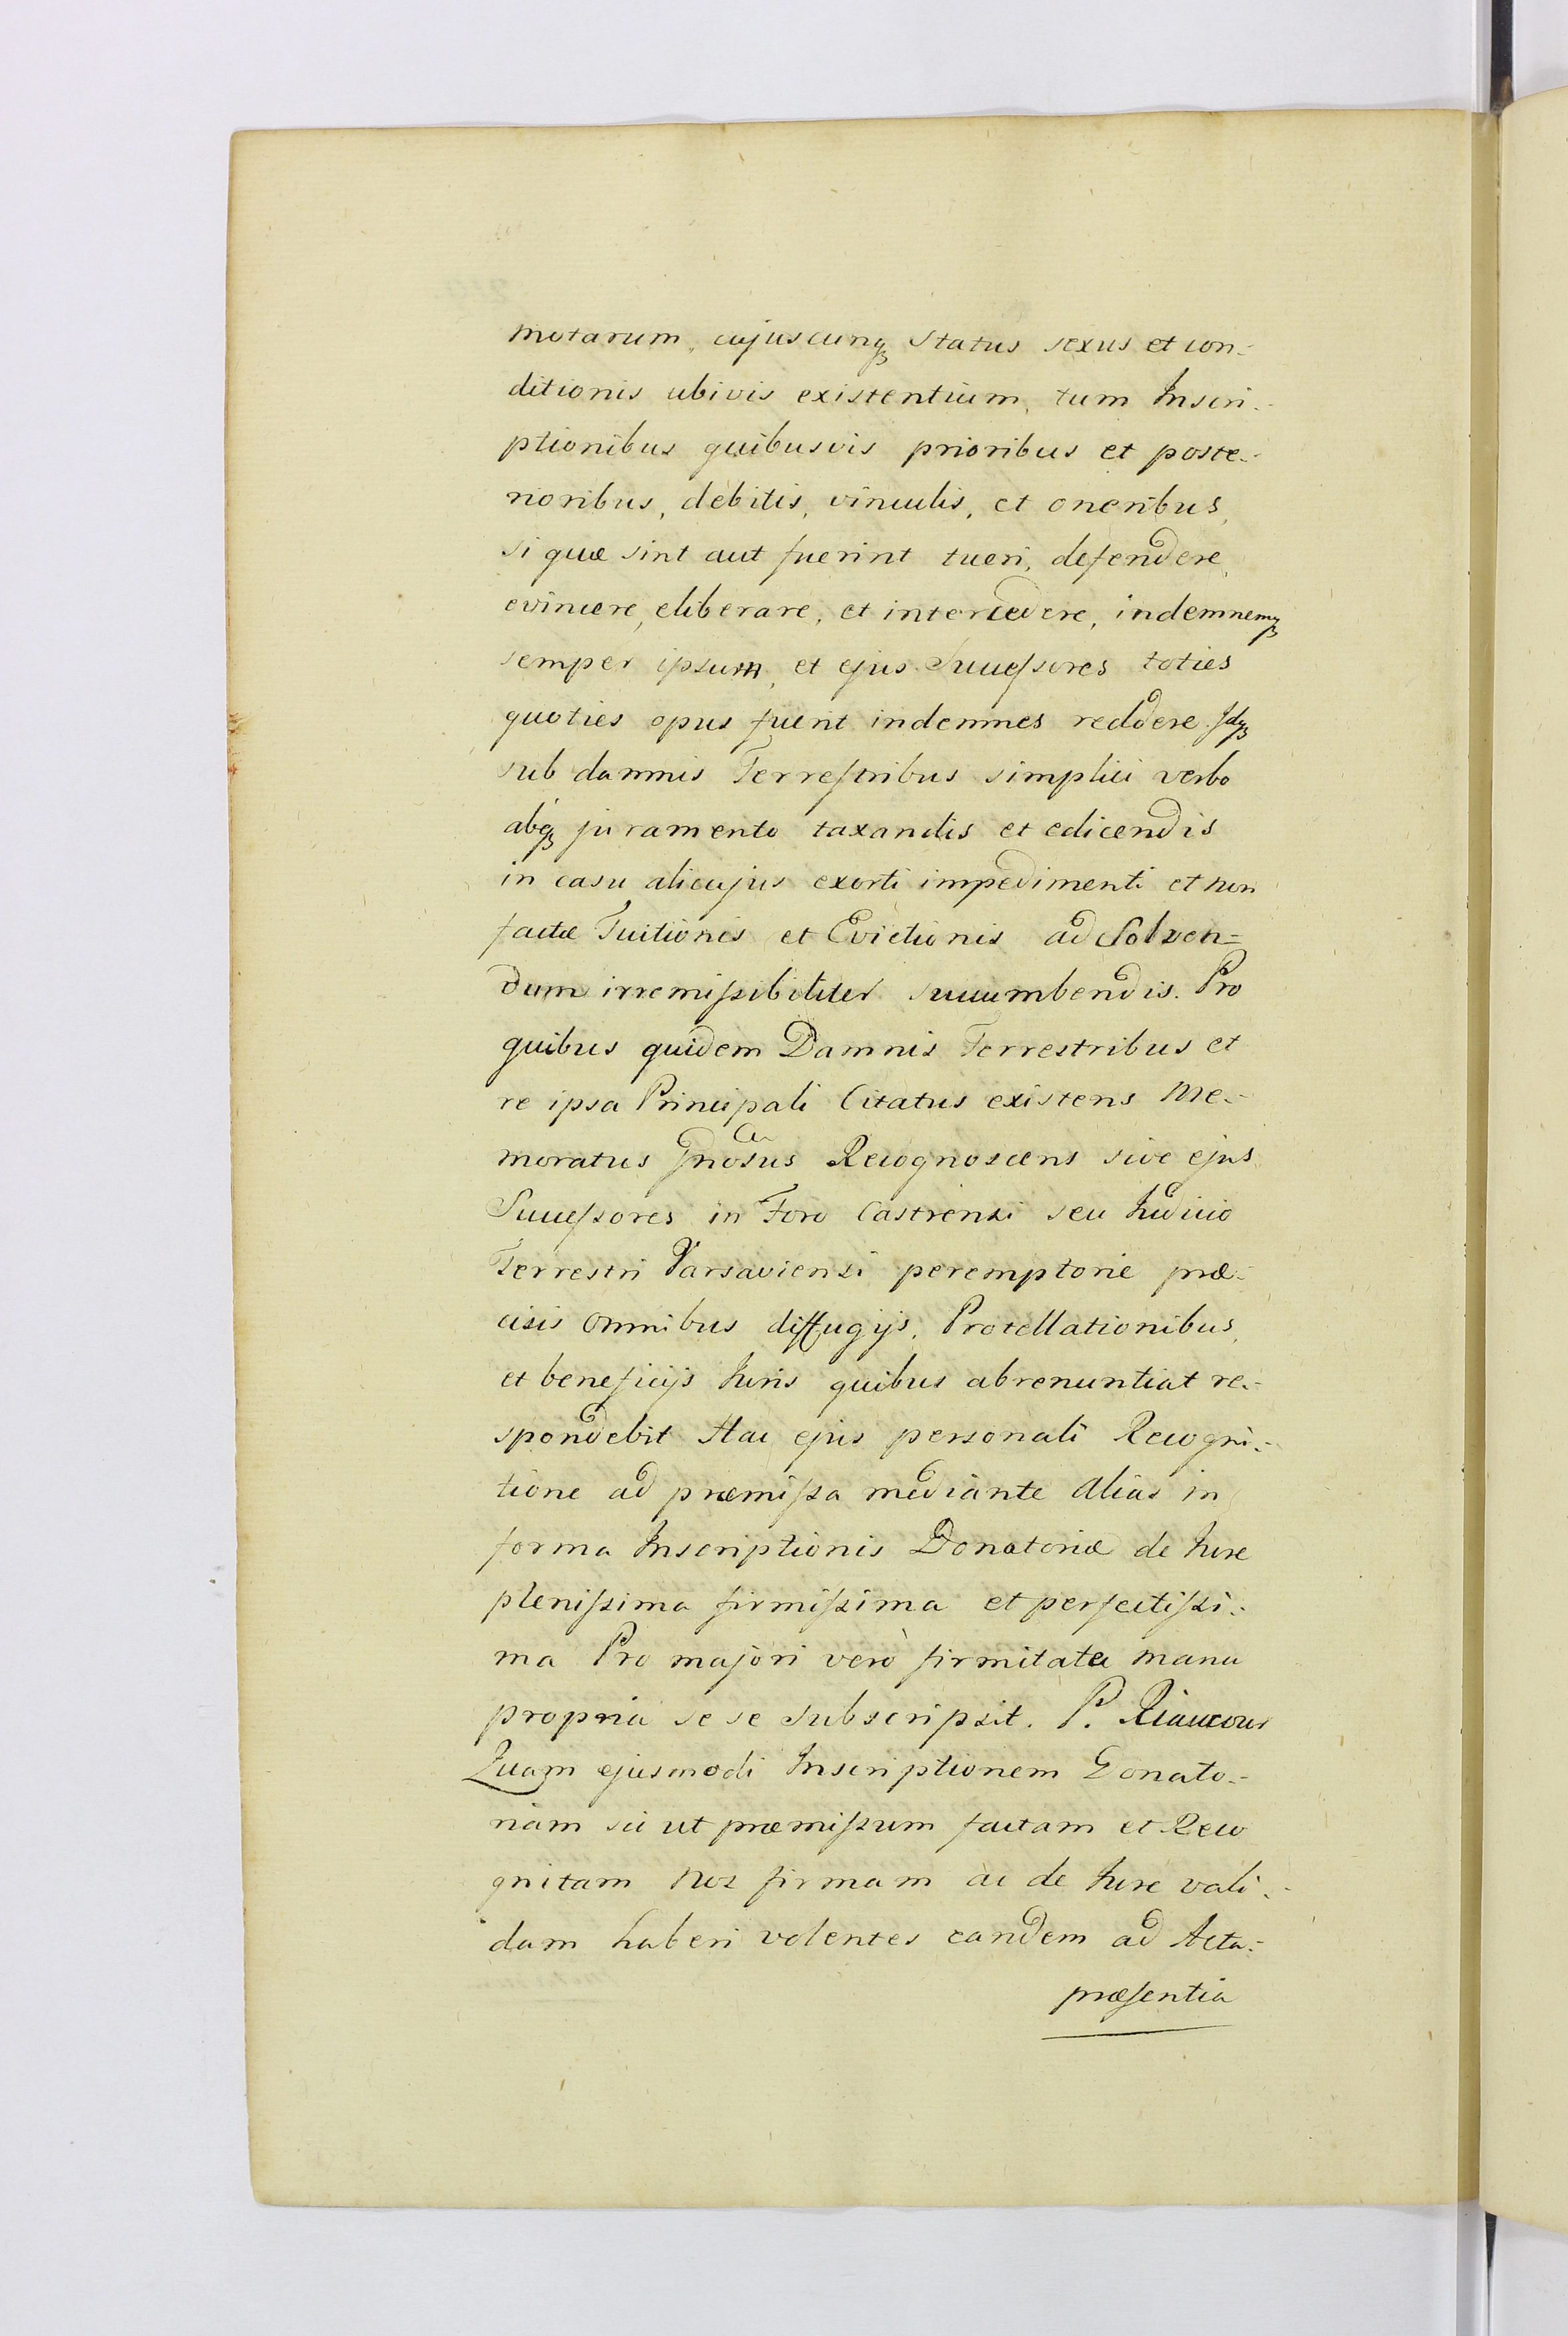 motarum, cujuscunqꝫ status sexus et con-
ditionis ubivis existentium, tum Inscri-
ptionibus quibusvis prioribus et poste-
rioribus, debitis, vinculis, et oneribus,
si quæ sint aut fuerint tueri, defendere,
evincere, eliberare, et intercedere, indemnemqꝫ
semper ipsum, et ejus Succeſsores toties
quoties opus fuerit indemnes reddere. Idqꝫ
sub damnis Terreſtribus simplici verbo
absqꝫ juramento taxandis et edicendis
in casu alicujus exorti impedimenti et non
factæ Tuitionis et Evictionis ad Solven=
dum irremiſsibiliter succumbendis. Pro
quibus quidem Damnis Terrestribus et
re ipsa Principali Citatus existens Me-
moratus Gnosus Recognoscens sive ejus
Succeſsores in Foro Castrensi seu Iudicio
Terrestri Varsaviensi peremptorie præ-
cisis omnibus diffugijs, Protellationibus,
et beneficijs Iuris quibus abrenuntiat re-
spondebit Hac ejus personali Recogni-
tione ad præmiſsa mediante alias in
forma Inscriptionis Donatoriæ de Iure
pleniſsima firmiſsima et perfectiſsi-
ma Pro majori verò firmitate manu
propria se se subscripsit. P. Riaucour
Quam ejusmodi Inscriptionem Donato-
riam sic ut præmiſsum factam et Reco
gnitam Nos firmam ac de Iure vali-
dam haberi volentes eandem ad Acta
præſentia